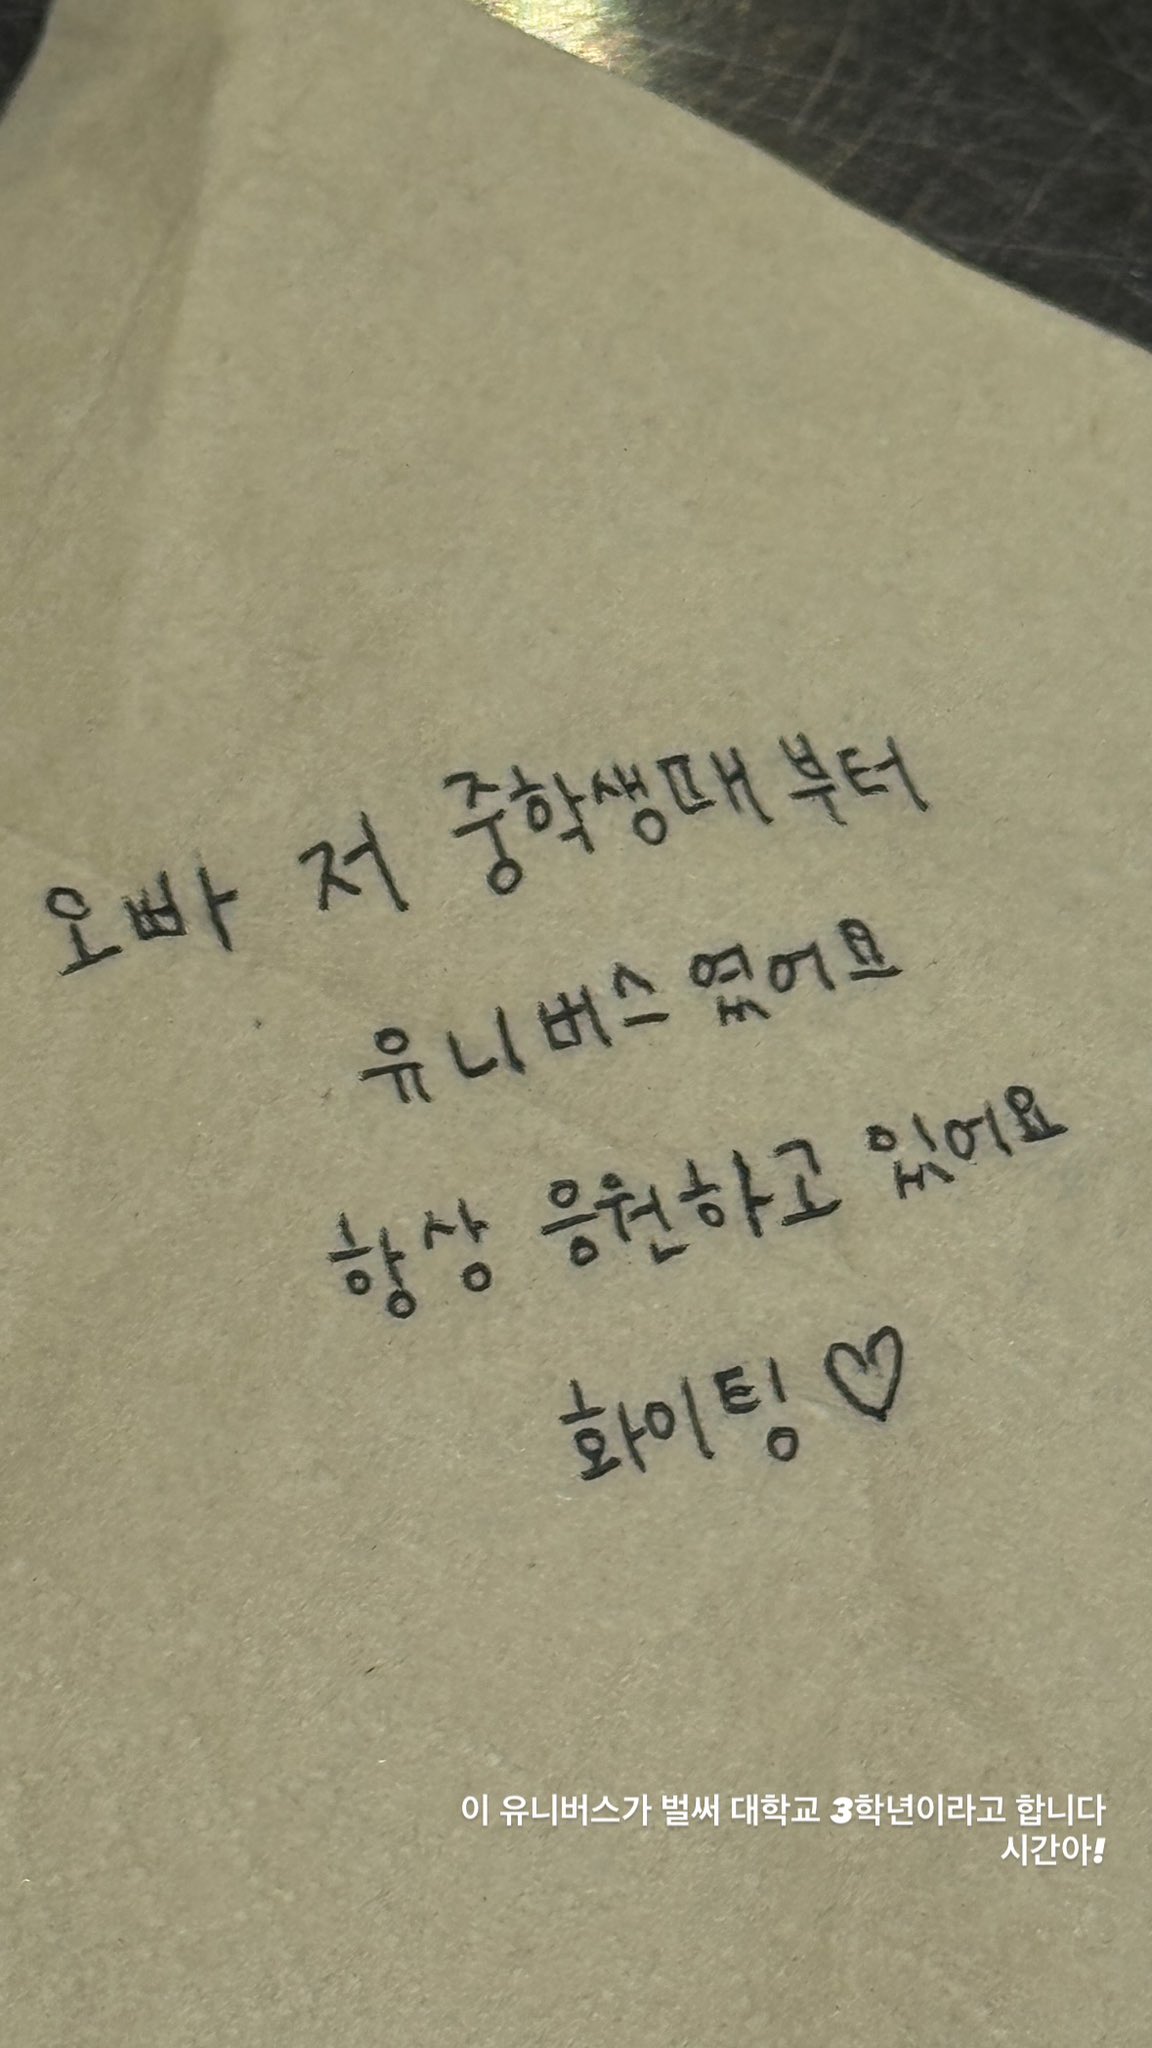 오빠 저 중학생때부터
유니버스였어요
항상 응원하고 있어요
화이팅 ♡
이 유니버스가 벌써 대학교 3학년이라고 합니다
시간아!